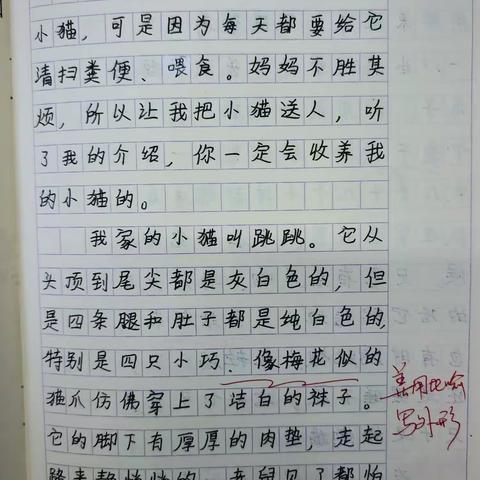 小猫，可是因为每天都要给它
清扫粪便、喂食。妈妈不胜其
烦，所以让我把小猫送人，听
了我的介绍，你一定会收养我
的小猫的。
我家的小猫叫跳跳。它从
头顶到尾尖都是灰白色的，但
是四条腿和肚子都是纯白色的，
特别是四只小巧、像梅花似的
猫爪仿佛穿上了洁白的袜子。
善用比喻
写外形
它的脚下有厚厚的肉垫，走起
路来静悄悄的，老鼠见了都怕